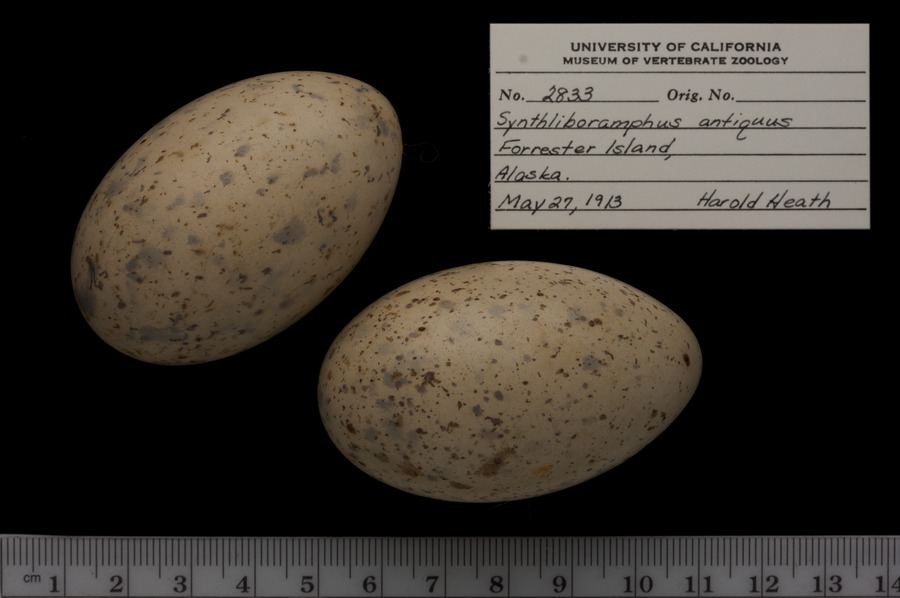 UNIVERSITY OF CALIFORNIA
MUSEUM OF VERTEBRATE ZOOLOGY
No. 2833 Orig. No.
Synthliboramphus antiquus
Forrester Island,
Alaska.
May 27, 1913 Harold Heath
cm 1 2 3 4 5 6 7 8 9 10 11 12 13 14